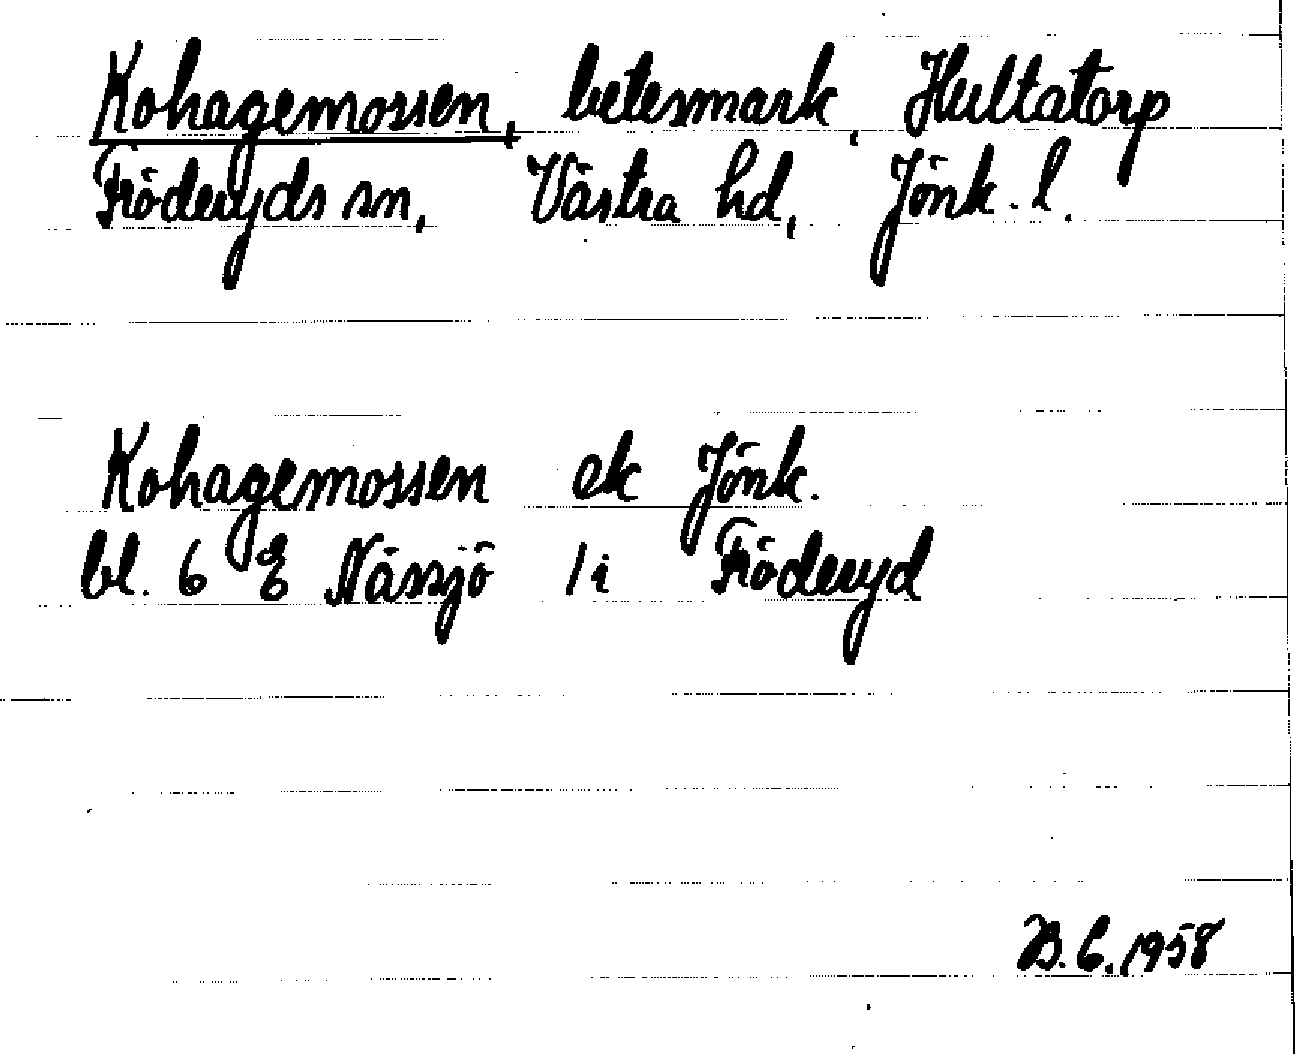 Kohagemossen, betesmark, Hultatorp
Fröderyds sn, Västra hd, Jönk. l.
Kohagemossen ek Jönk.
bl. 6 E Nässjö 1i Fröderyd
B.C. 1958